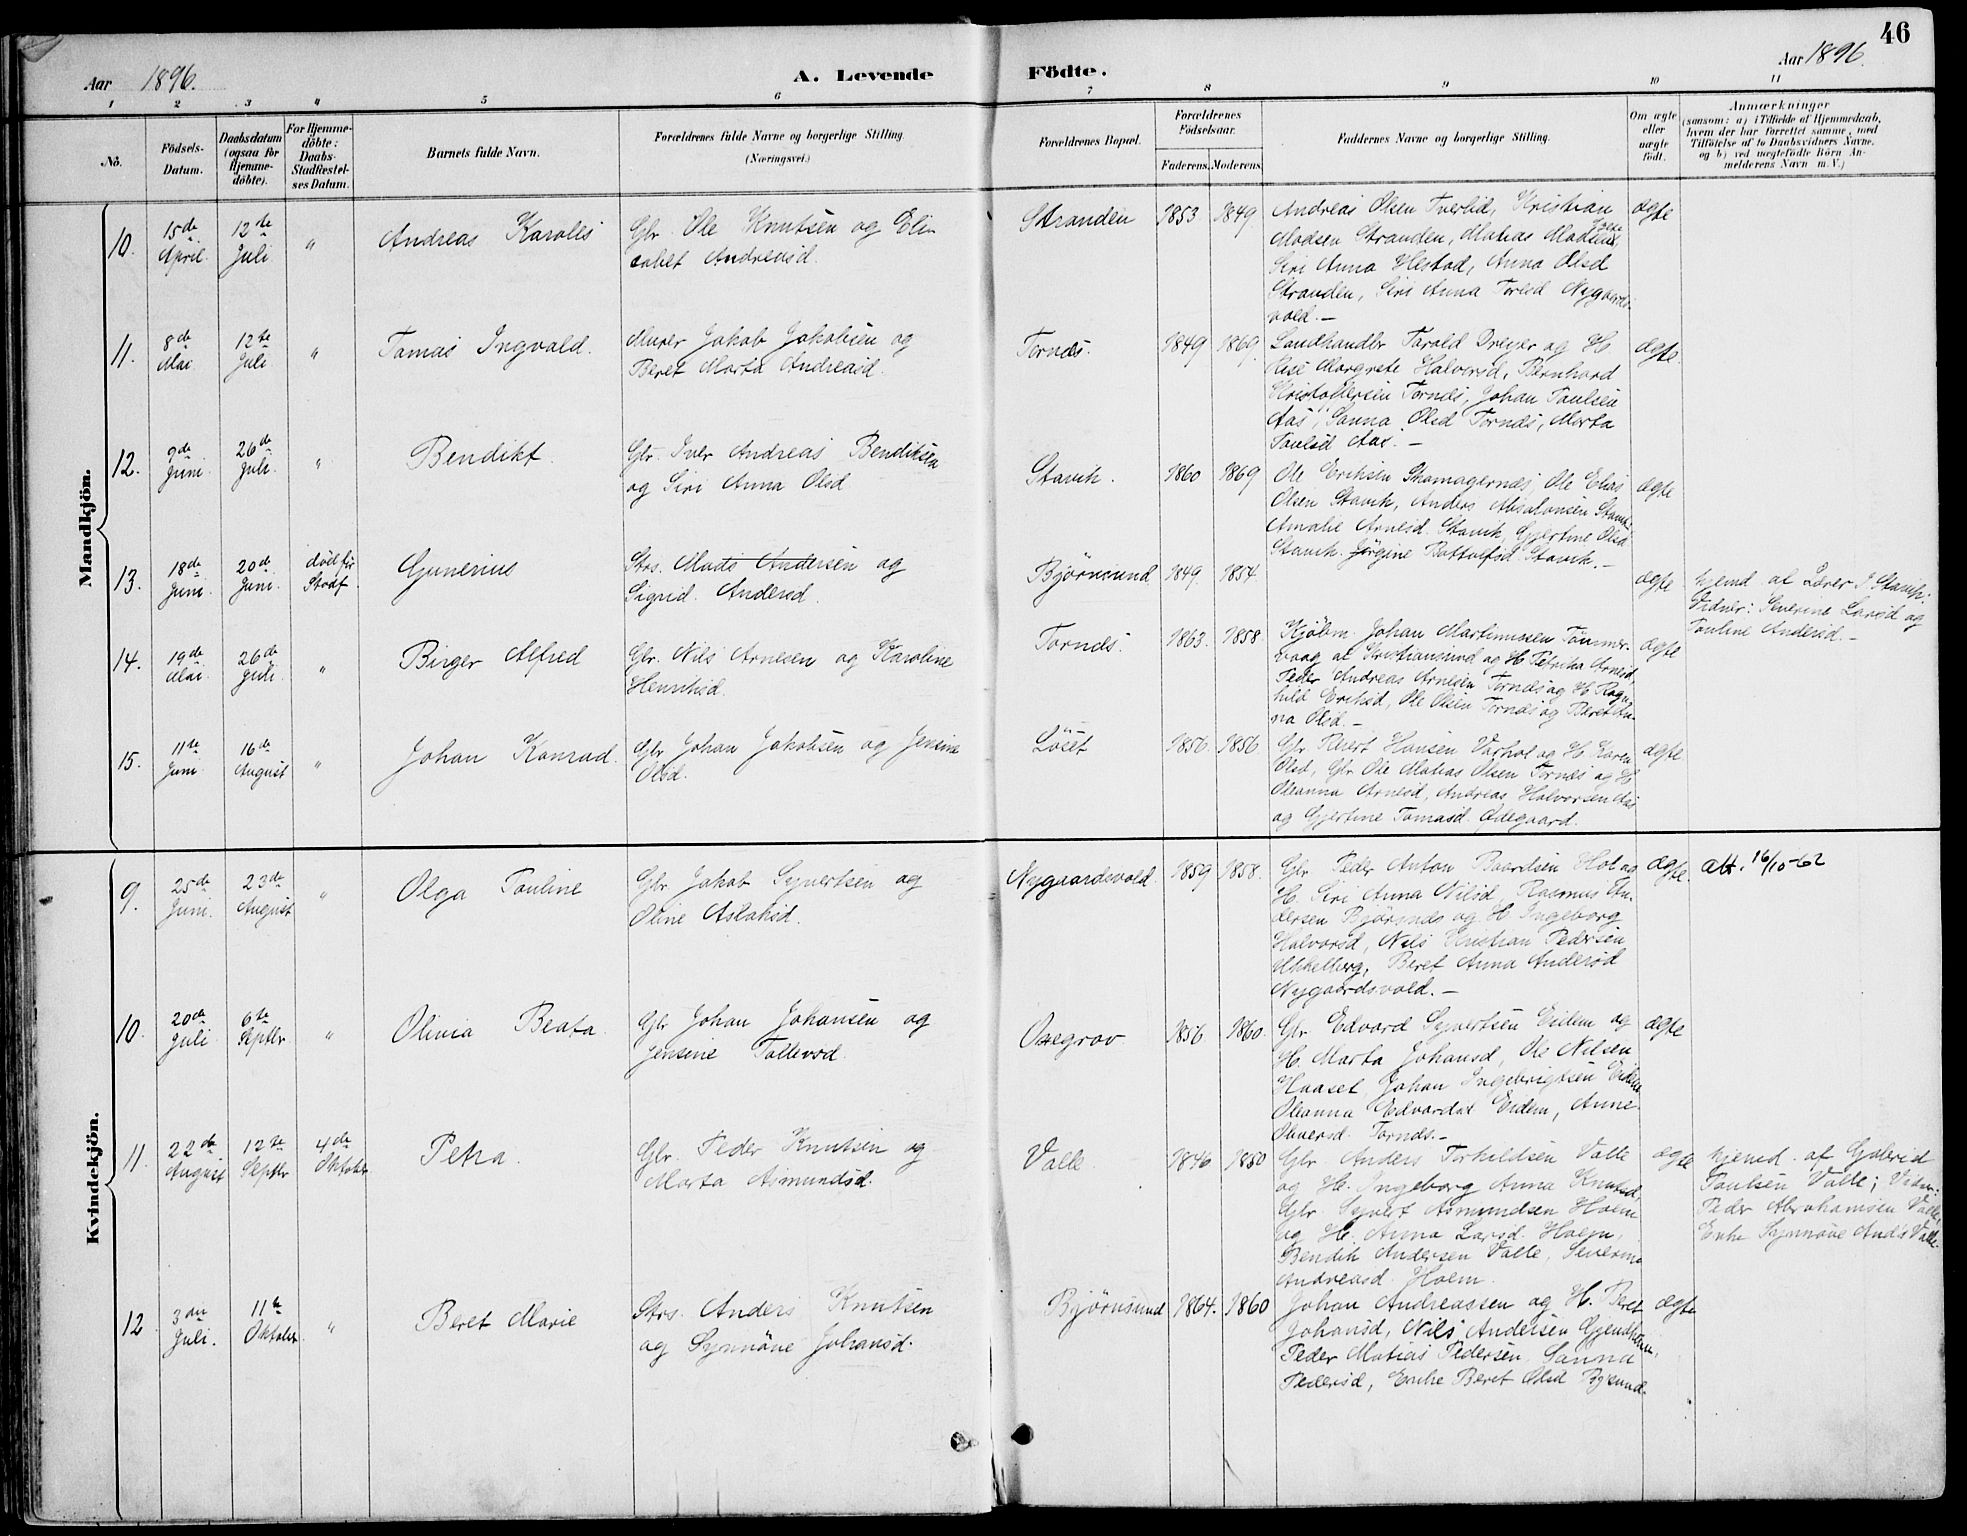 46
Aar 1896.
A. Levende Födte.
Aar 1896
1 2 3 4 5 6 7 8 9 10 11
No.
Födsels-Datum.
Daabsdatum (ogsaa for Hjemme-döbte).
For Hjemme-döbte: Daabs-Stadfæstel-ses Datum.
Barnets fulde Navn.
Forældrenes fulde Navne og borgerlige Stilling.
(Næringsvei.)
Forældrenes Bopæl.
Forældrenes Födselsaar.
Faderens. Moderens.
Faddernes Navne og borgerlige Stilling.
Om ægte eller uægte födt.
Anmærkninger
(saasom: a) i Tilfælde af Hjemmedaab,
hvem der har forrettet samme, med
Tilföielse af to Daabsvidners Navne,
og b) ved uægtefödte Börn An-
melderens Navn m. V.)
Mandkjön.
10. 15de April 12te Juli " Andreas Karolis
Gbr. Ole Knutsen og Eli-
sabet Andreasd.
Stranden 1853 1849
Andreas Olsen Tverlid, Kristian
Madsen Stranden, Matias Madsen
Siri Anna Hestad, Anna Olsd
Stranden, Siri Anna Toresd Nygaards-
vold.—
ægte
11. 8de Mai 12te Juli " Tomas Ingvald.
Murer Jakob Jakobsen og
Beret Marta Andreasd.
Tornes. 1849 1869
Landhandler Tarald Dreyer og H.
Margrete Halvorsd, Bernhard
Kristoffersen Tornes, Johan Paulsen
Aas, Sanna Olsd Tornes, Marta
Paulsd Aas.—
ægte.
12. 9de Juni 26de Juli. " Bendikt
Gbr. Iver Andreas Bendiksen
og Siri Anna Olsd
Stavik. 1860 1869
Ole Eriksen Skamagernes, Ole Elias
Olsen Stavik, Anders Absalonsen Stavik
Amalie Arnesd. Stavik, Gjertine Olsd
Stavik. Jørgine Bottolfsd. Stavik.—
ægte
13. 18de Juni. 20de Juni. död før Stadf. Gunerius
Strs. Mads Andersen og
Sigrid Andersd.
Björnsund 1849. 1854.
ægte
hjemd. af Lærer J. Stavik;
Vidner: Severine Larsd og
Pauline Andersd.—
14. 19de Mai 26de Juli. " Birger Alfred
Gbr. Nils Arnesen og Karoline
Henriksd.
Tornes. 1863. 1858
Kjöbm. Johan Martinussen Tömmer-
vaag af Kristiansund og H. Petrika Arnesd,
Peder Andreas Arnesen Tornes og H. Ragn-
hild Eriksd, Ole Olsen Tornes og Beret An-
na Olsd.—
ægte
15. 11te Juni 16de August " Johan Konrad.
Gbr. Johan Jakobsen og Jensine
Olsd.
Löset 1856. 1856
Gbr. Reiert Hansen Varhol og H. Karen
Olsd, Gbr. Ole Matias Olsen Tornes og H.
Oleanna Arnesd, Andreas Halvorsen Aas
og Gjertine Tomasd. Ödegaard.
ægte.
Kvindekjön.
9. 25de Juni. 23de August " Olga Pauline
Gbr. Jakob Syvertsen og
Oline Aslaksd.
Nygaardsvold. 1859 1858.
Gbr. Peder Anton Baardsen Hol og
H. Siri Anna Nilsd, Rasmus An-
dersen Bjørsnes og H. Ingeborg
Halvorsd, Nils Kristian Pedersen
Ukkelberg, Beret Anna Andersd
Nygaardsvold.—
ægte. att. 16/10-62
10. 20de Juli 6te Septbr " Olivia Beata
Gbr. Johan Johansen og
Jensine Tollevsd.
Osegrov 1856 1860.
Gbr. Edvard Syvertsen Eidem og
H. Marta Johansd, Ole Nilsen
Haaset, Johan Ingebrigtsen Eidem
Oleanna Edvardsd Eidem, Anne
Oliversd. Tornes.—
ægte
11. 22de August 12te Septbr 4de Oktober Petra
Gbr. Peder Knutsen og
Marta Asmundsd.
Valle 1846 1850
Gbr. Anders Torkildsen Valle
og H. Ingeborg Anna Knutsd,
Gbr. Syvert Asmundsen Hoem
og H. Anna Larsd. Hoem,
Bendik Andersen Valle, Severine
Andreasd. Hoem.
ægte
hjemd. af Gabriel
Paulsen Valle; Vidner:
Peder Abrahamsen Valle,
Enke Synnöve Andsd Valle.
12 3die Juli. 11te Oktober " Beret Marie
Strs. Anders Knutsen
og Synnöve Johansd.
Björnsund 1864. 1860
Johan Andreassen og H. Beret
Johansd, Nils Andersen Gjendhem,
Peder Matias Pedersen, Sanna
Pedersd, Enke Beret Olsd Bjsund.
ægte